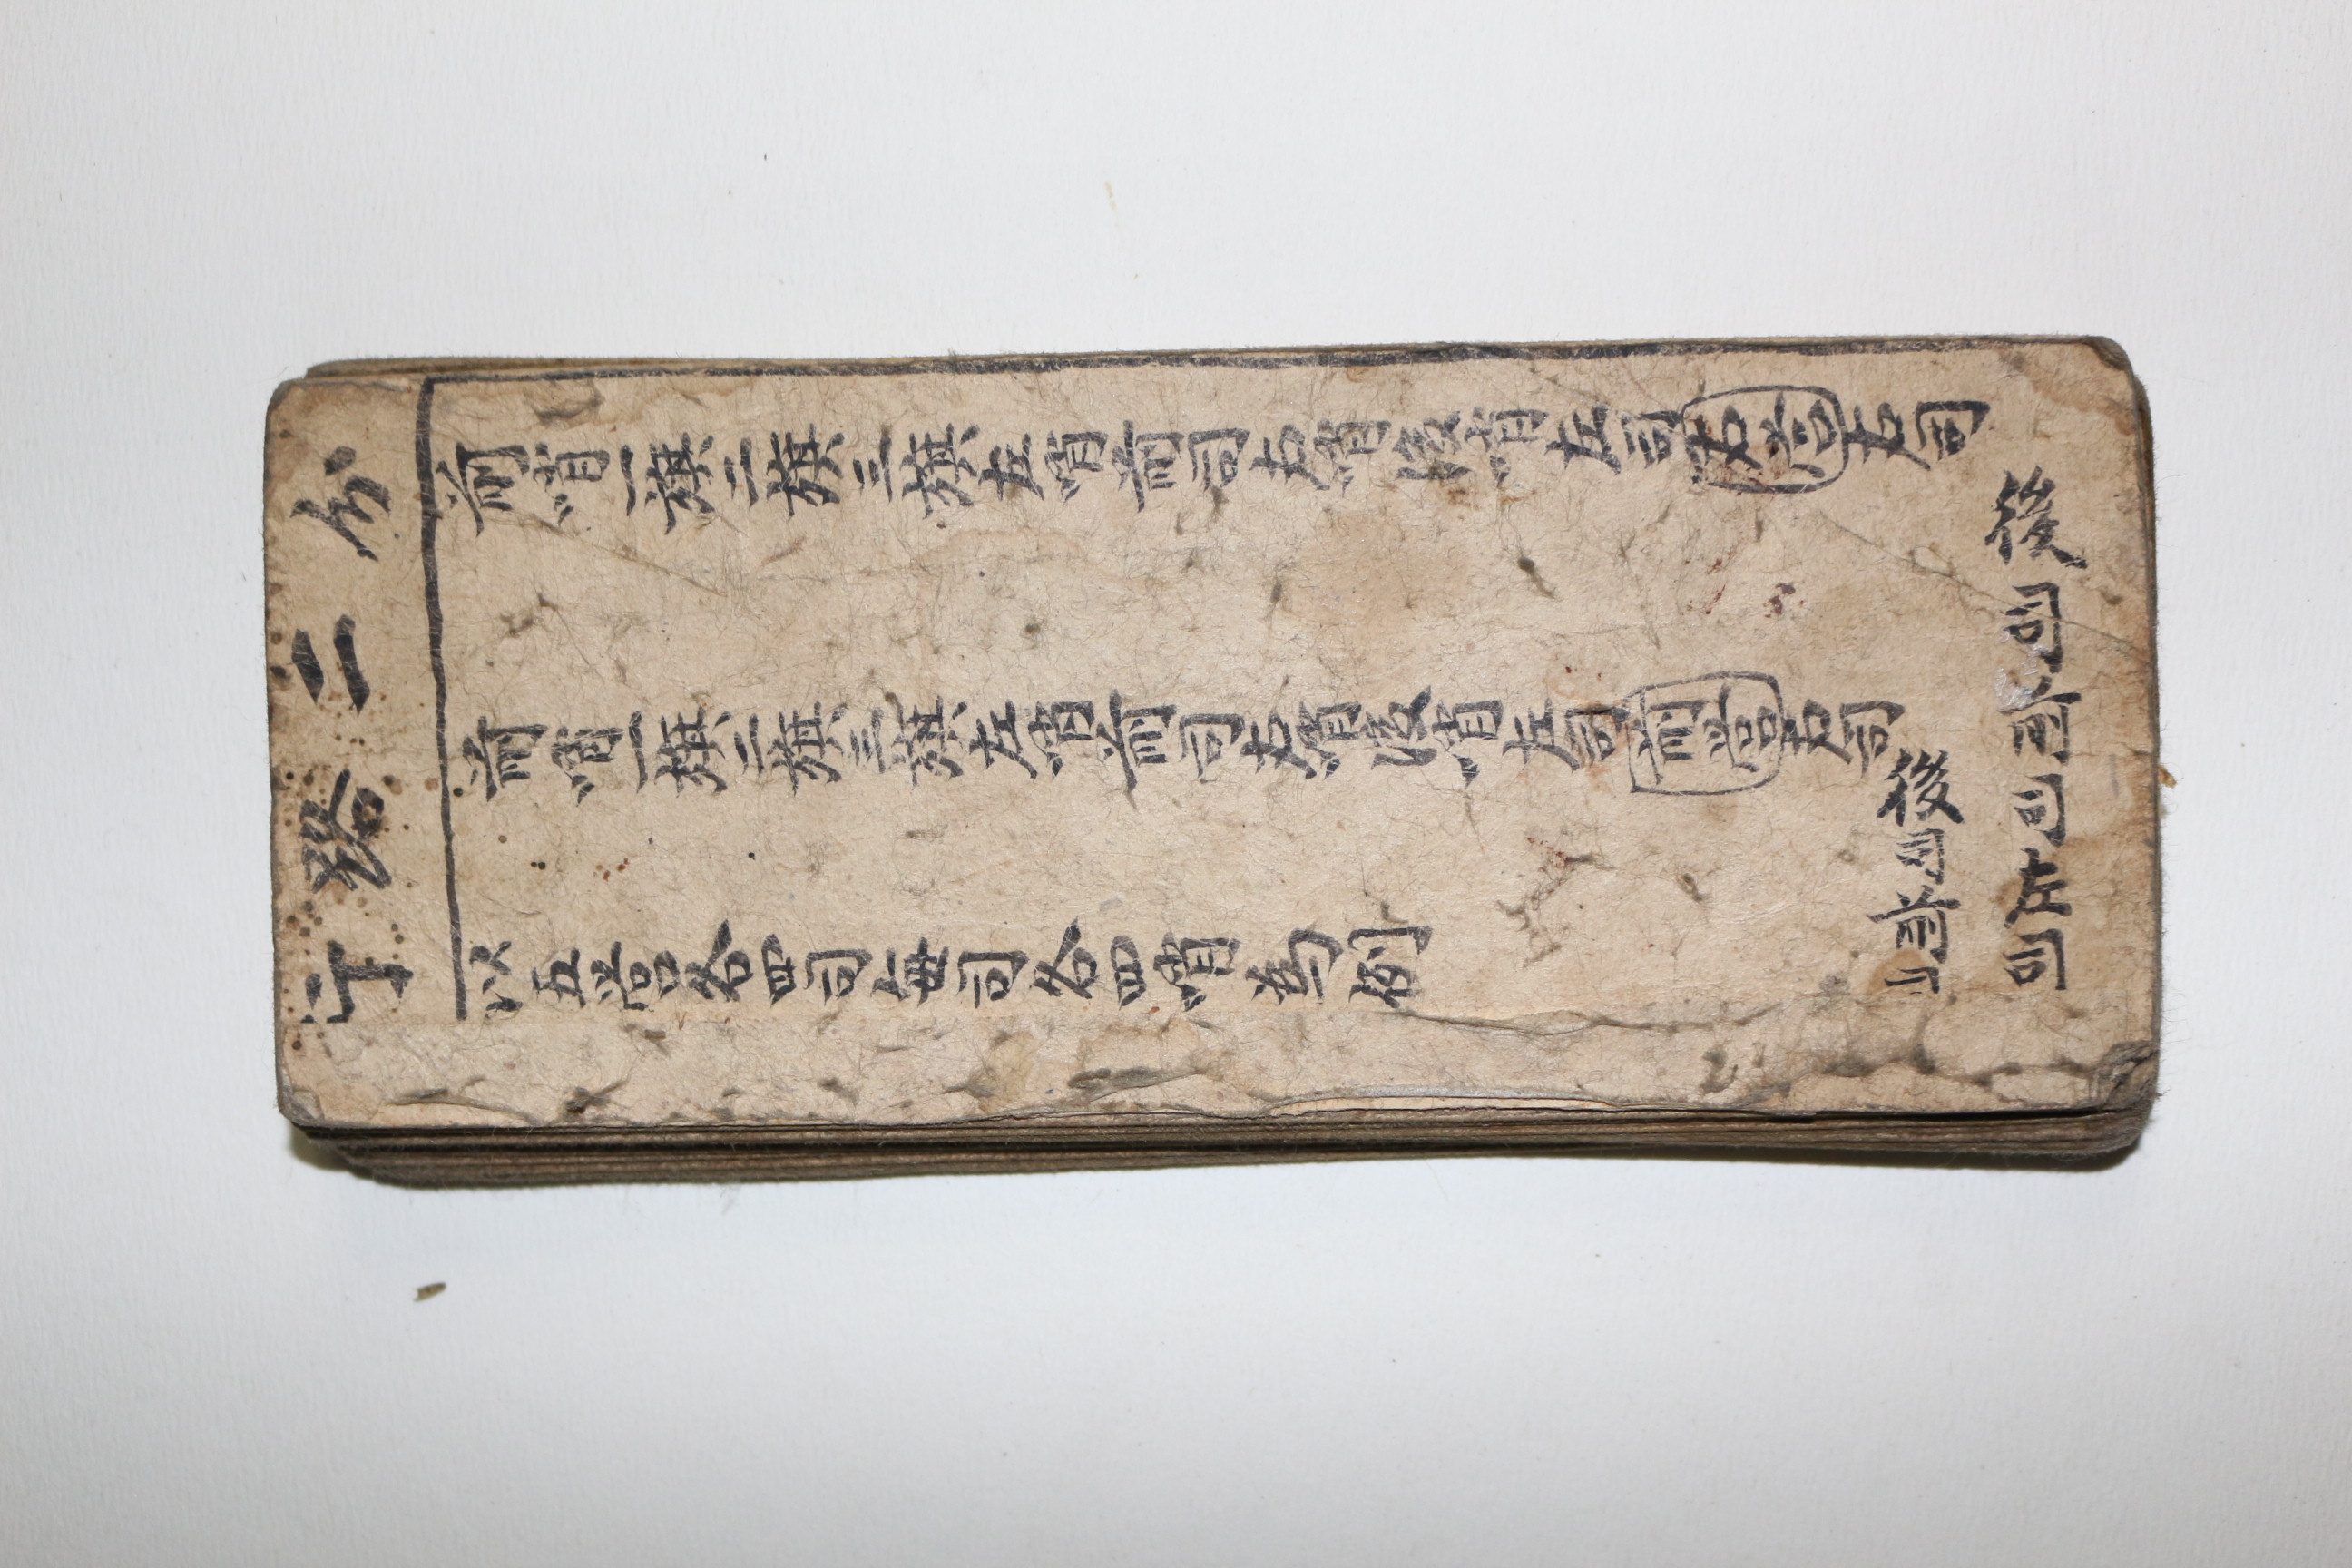 分二路行
前哨一旗二旗三旗左哨前司右哨後哨左司右營右司
後司前司左司
前哨一旗二旗三旗左哨前司右哨後哨左司前營右司
後司前司
以五營各四司每司各四哨為例